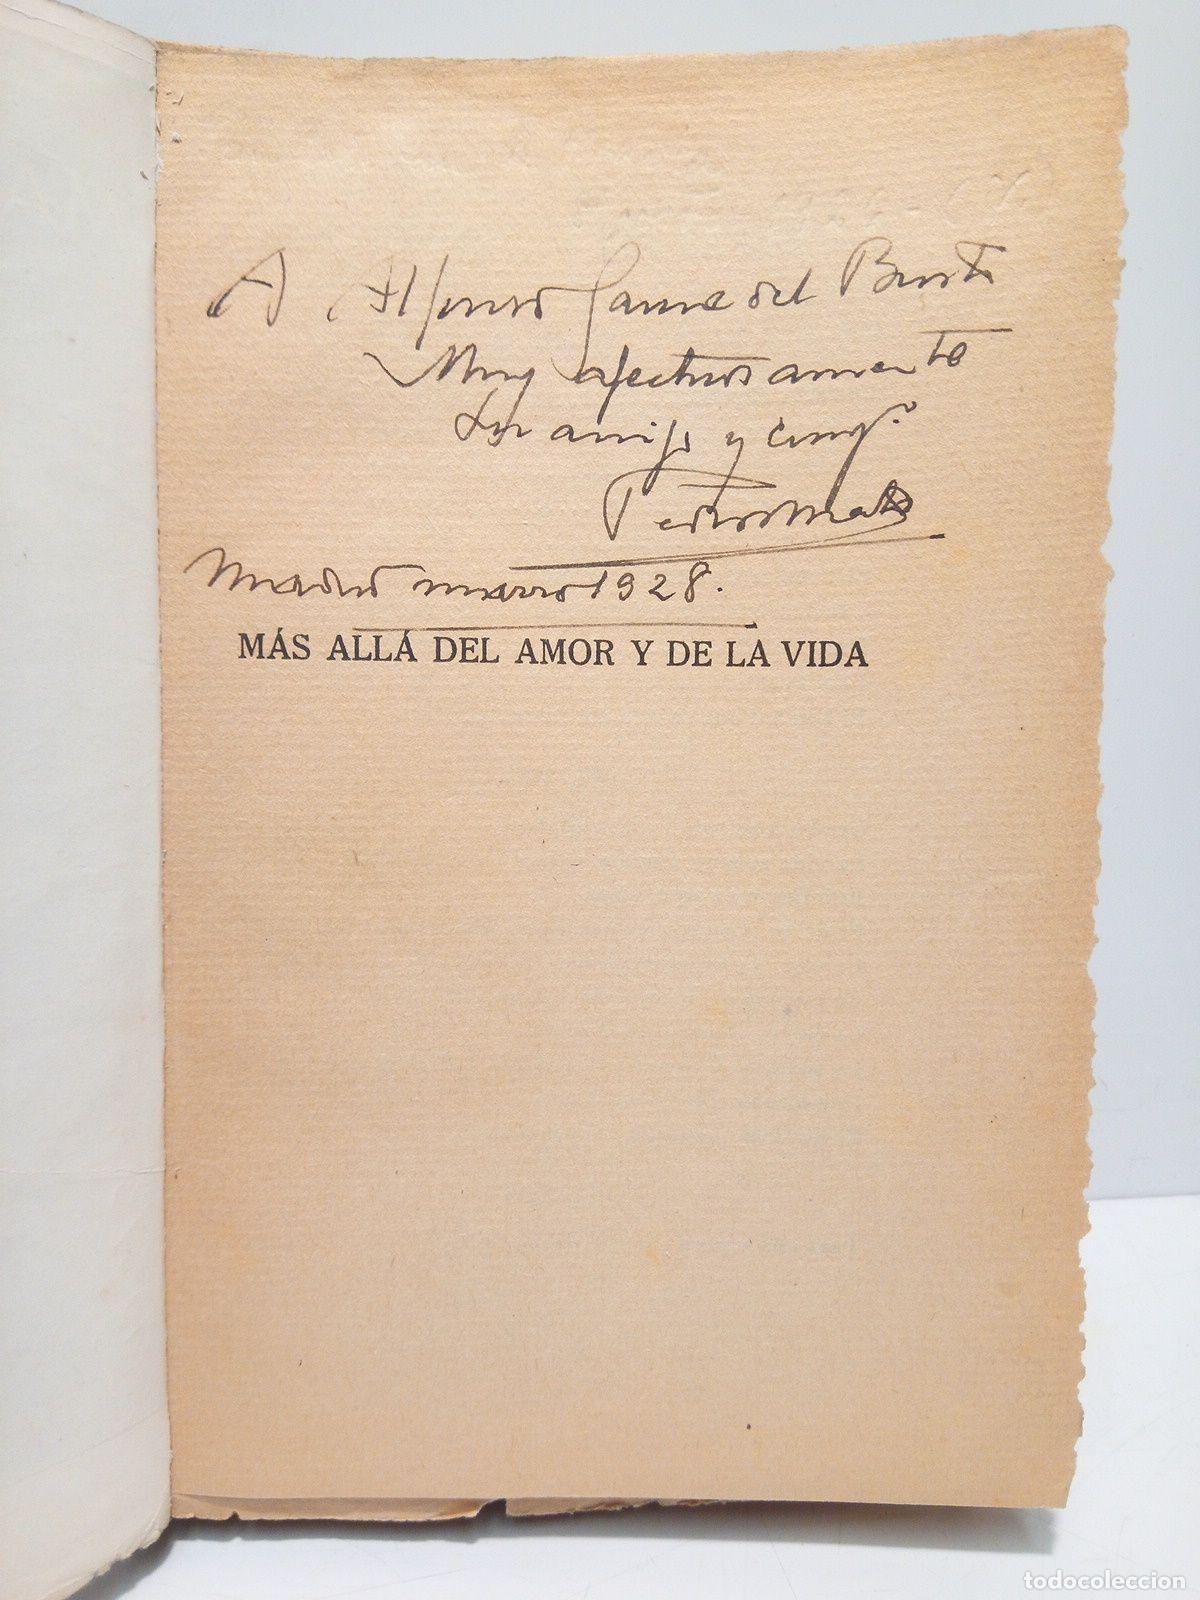 A Alfonso Game del Busto
Muy afectuosamente
Su amigo y comp.º
Pedro Mata
Madrid marzo 1928.
MÁS ALLÁ DEL AMOR Y DE LA VIDA
todocoleccion